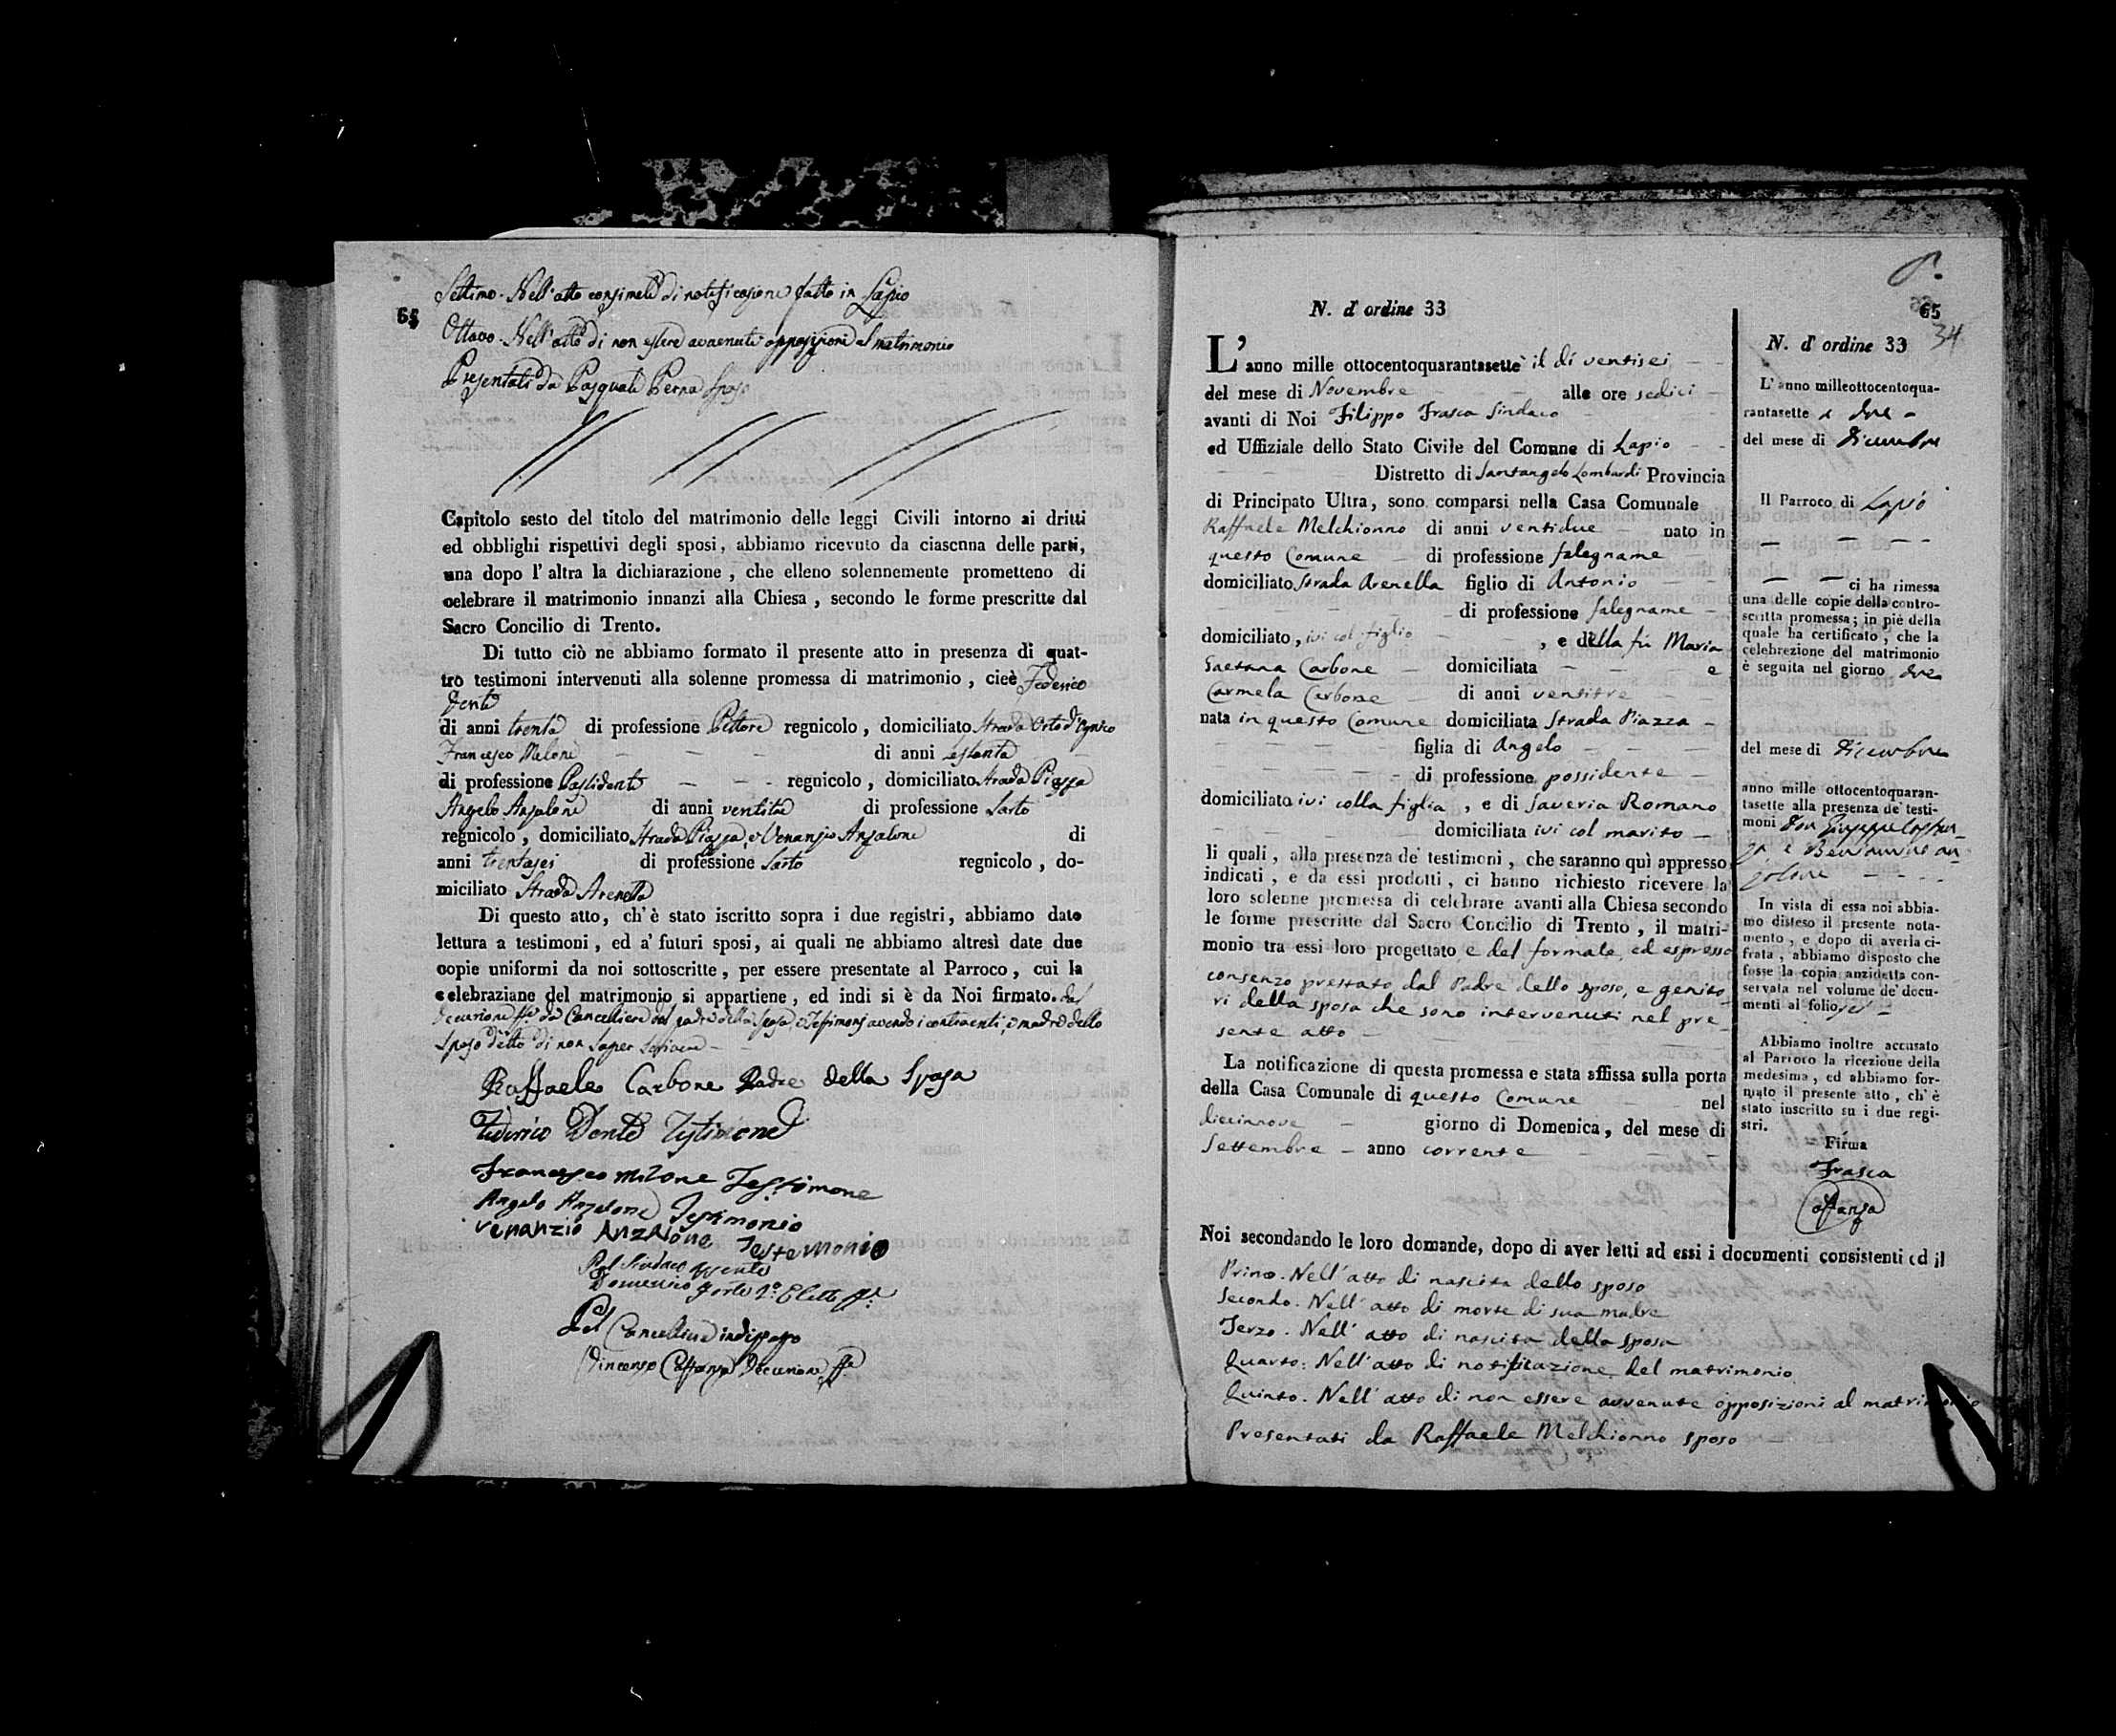 64
Settimo. Nell'atto consimile di notificazione fatto in Lapio
Ottavo. Nell'atto di non essere avvenute opposizioni al matrimonio
Presentati da Pasquale Perna sposo
Capitolo sesto del titolo del matrimonio delle leggi Civili intorno ai dritti
ed obblighi rispettivi degli sposi, abbiamo ricevuto da ciascnna delle parti,
una dopo l'altra la dichiarazione, che elleno solennemente prometteno di
celebrare il matrimonio innanzi alla Chiesa, secondo le forme prescritte dal
Sacro Concilio di Trento.
Di tutto ciò ne abbiamo formato il presente atto in presenza di quat-
tro testimoni intervenuti alla solenne promessa di matrimonio, cieè Federico
Dente
di anni trenta di professione regnicolo, domiciliato Strada Orto
Francesco Melone di anni settanta
di professione Possidente regnicolo, domiciliato Strada Piazza
Angelo Anzalone di anni ventitre di professione Sarto
regnicolo, domiciliato Strada Piazza, e Venanzio Anzalone di
anni trentasei di professione Sarto regnicolo, do-
miciliato Strada Arenella
Di questo atto, ch'è stato iscritto sopra i due registri, abbiamo dato
lettura a testimoni, ed a' futuri sposi, ai quali ne abbiamo altresì date due
copie uniformi da noi sottoscritte, per essere presentate al Parroco, cui la
celebraziane del matrimonio si appartiene, ed indi si è da Noi firmato. dal
Decurione ff.e da Cancelliere dal padre della Sposa, e Testimonj avendo i contraenti, e madre dello
Sposo detto di non saper scrivere
Raffaele Carbone Padre della Sposa
Federico Dente Testimone
Francesco Milone Testimone
Angelo Anzalone Testimonio
Venanzio Anzalone Testemonio
Pel Sindaco assente
Domenico Forte 2.o Eletto ff.e
Pel Cancelliere indisposto
Vincenzo Decurione ff.e
N. d' ordine 33
L'anno mille ottocentoquarantasette il dì ventisei
del mese di Novembre alle ore sedici
avanti di Noi Filippo Frasca Sindaco
ed Uffiziale dello Stato Civile del Comune di Lapio
Distretto di Santangelo Lombardi Provincia
di Principato Ultra, sono comparsi nella Casa Comunale
Raffaele Melchionno di anni ventidue nato in
questo Comune di professione falegname
domiciliato Strada Arenella figlio di Antonio
di professione falegname
domiciliato, ivi col figlio, e della fù Maria
Gaetana Carbone domiciliata e
Carmela Carbone di anni ventitre
nata in questo Comune domiciliata Strada Piazza
figlia di Angelo
di professione possidente
domiciliato ivi colla figlia, e di Saveria Romano
domiciliata ivi col marito
li quali, alla presenza de' testimoni, che saranno quì appresso
indicati, e da essi prodotti, ci hanno richiesto ricevere la
loro solenne promessa di celebrare avanti alla Chiesa secondo
le forme prescritte dal Sacro Concilio di Trento, il matri-
monio tra essi loro progettato e del formale, ed espresso
consenzo prestato dal Padre dello sposo, e genito-
ri della sposa che sono intervenuti nel pre-
sente atto
La notificazione di questa promessa e stata affissa sulla porta
della Casa Comunale di questo Comune nel
diecinnove giorno di Domenica, del mese di
Settembre anno corrente
65
34
N. d' ordine 33
L'anno milleottocentoqua-
rantasette a due
del mese di Dicembre
Il Parroco di Lapio
ci ha rimessa
una delle copie della contro-
scritta promessa; in piè della
quale ha certificato, che la
celebrezione del matrimonio
è seguita nel giorno due
del mese di Dicembre
anno mille ottocentoquaran-
tasette alla presenza de' testi-
moni Don Giuseppe
In vista di essa noi abbia-
mo disteso il presente nota-
mento, e dopo di averla ci-
frata, abbiamo disposto che
fosse la copia anzidetta con-
servata nel volume de' docu-
menti al folio
Abbiamo inoltre accusato
al Parroco la ricezione della
medesima, ed abbiamo for-
mato il presente atto, ch'è
stato inscritto su i due regi-
stri.
Firma
Frasca
Noi secondando le loro domande, dopo di aver letti ad essi i documenti consistenti ed il
Primo. Nell'atto di nascita dello sposo
Secondo. Nell'atto di morte di sua madre
Terzo. Nell'atto di nascita della sposa
Quarto: Nell'atto di notificazione del matrimonio
Quinto. Nell'atto di non essere avvenute opposizioni al matrimonio
Presentati da Raffaele Melchionno sposo